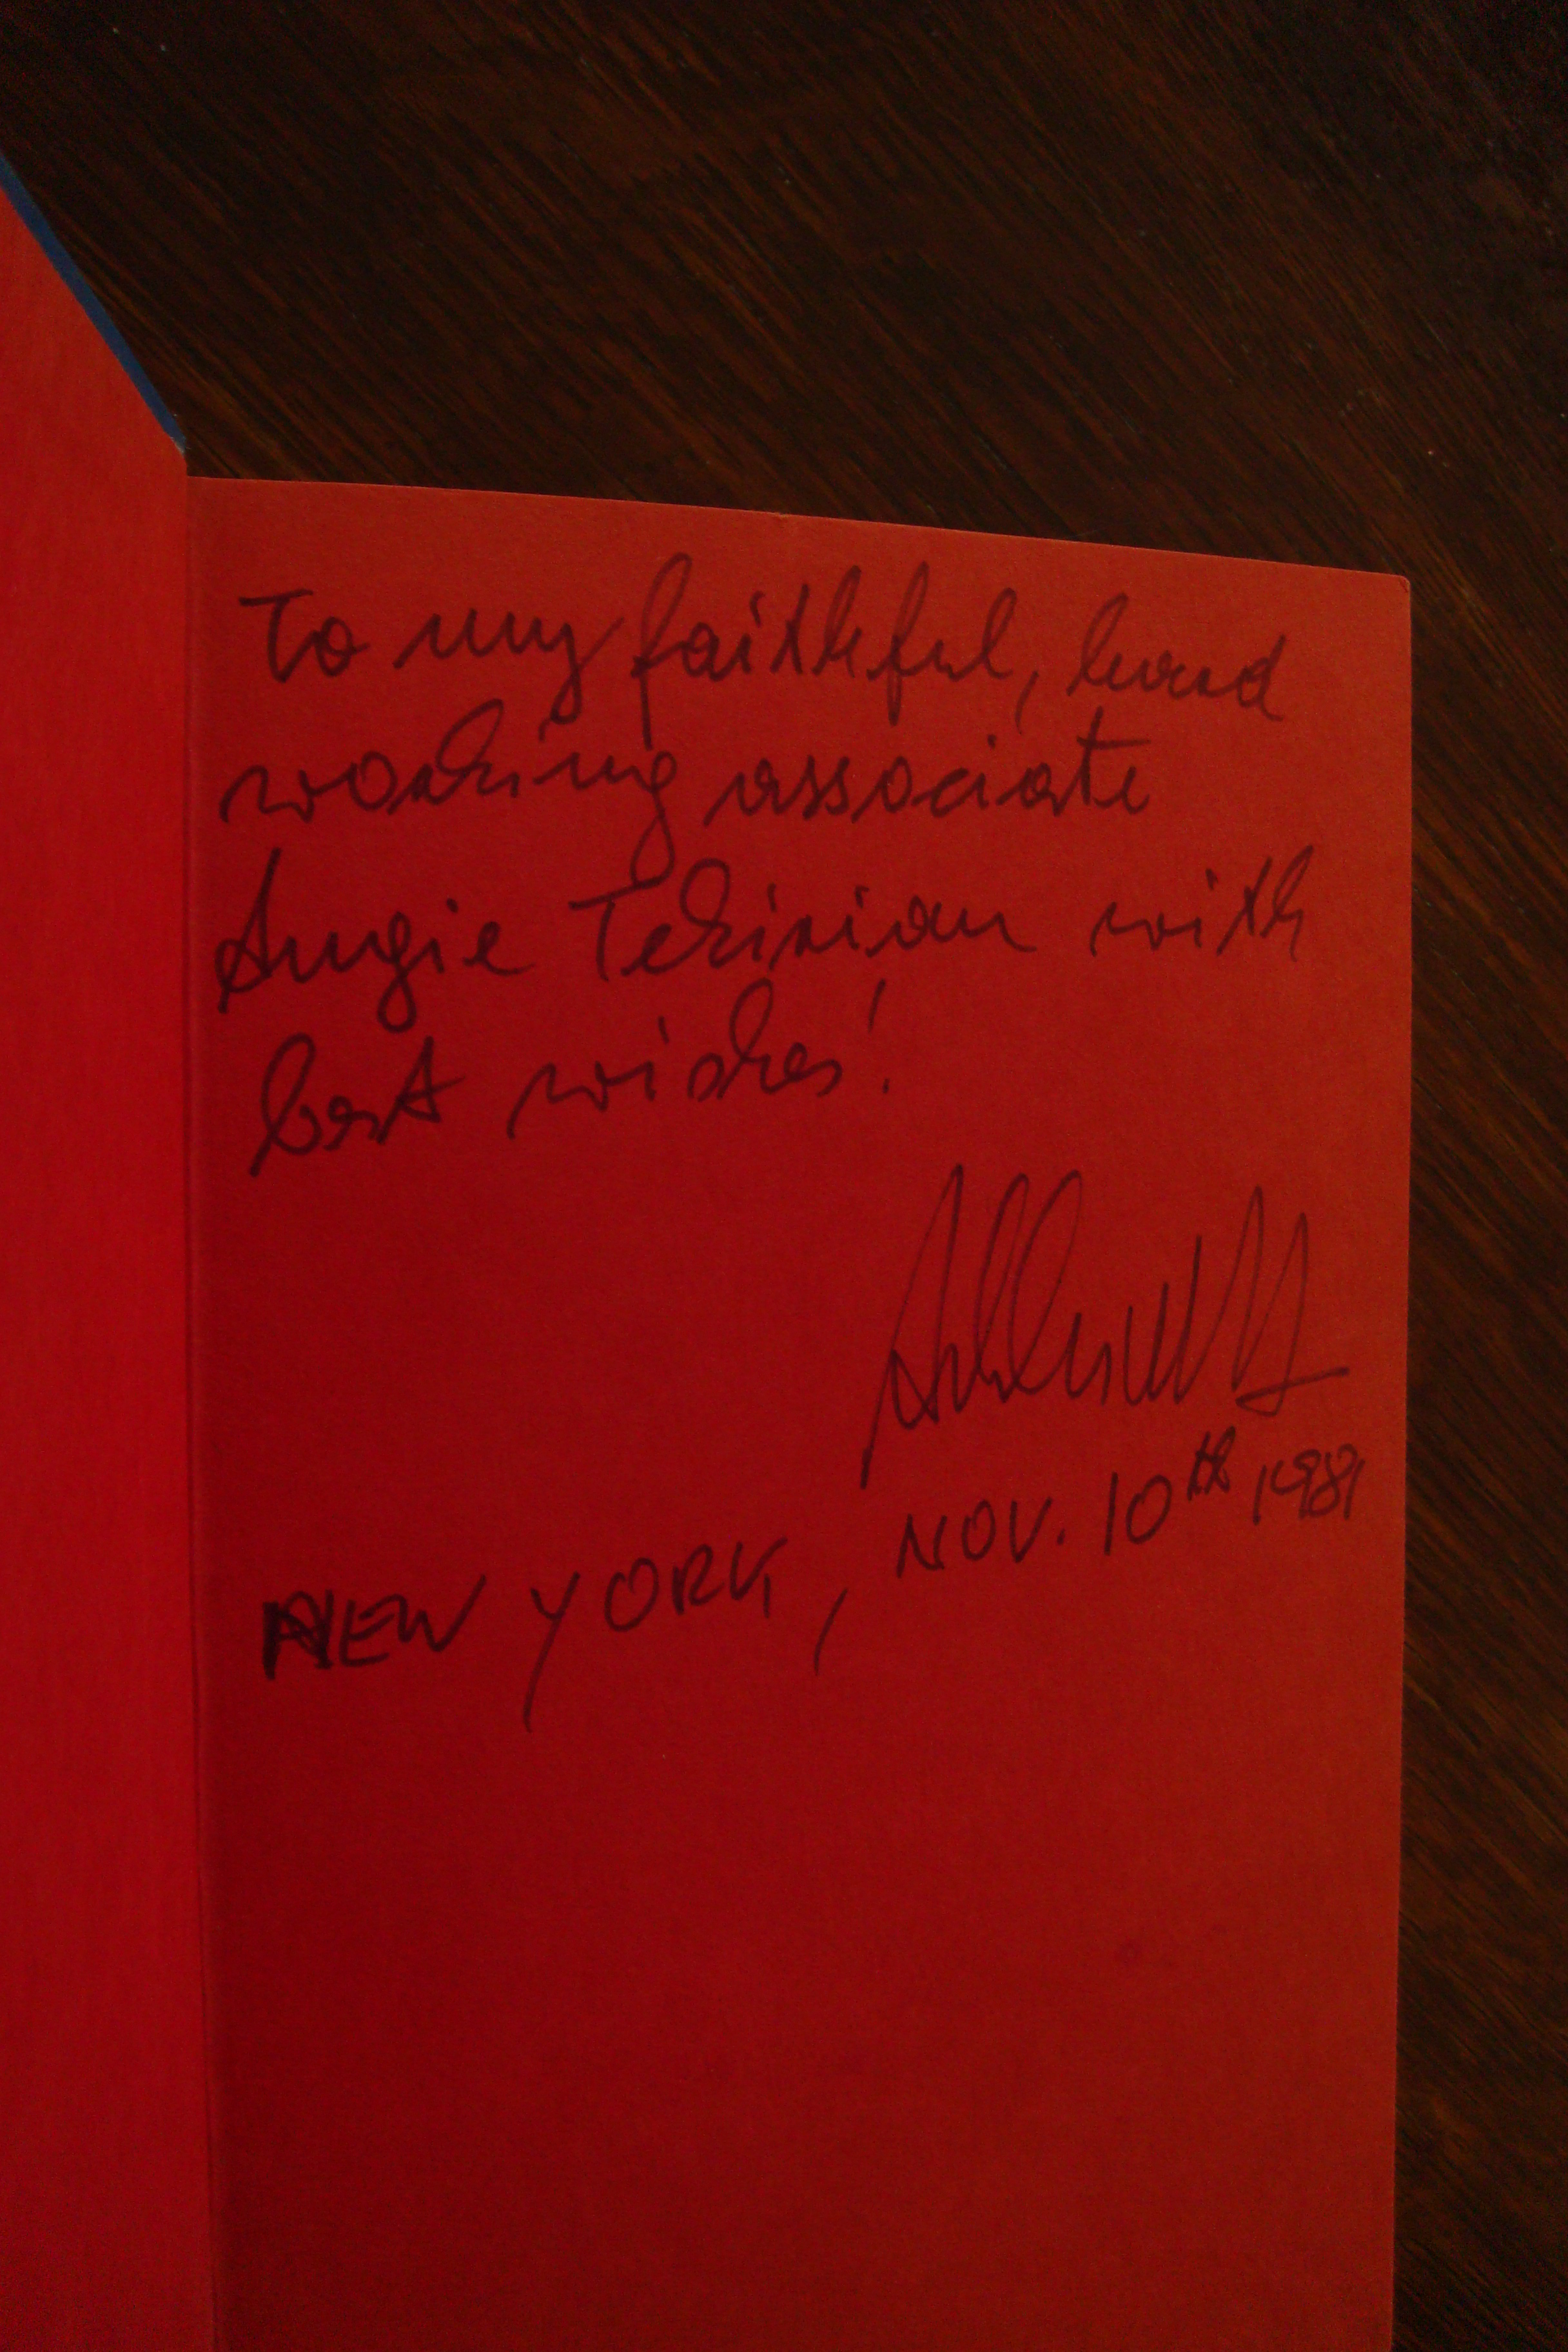 To my faithful, hard
working associate
Angie Tekirian with
best wishes!
NEW YORK, NOV. 10th 1981